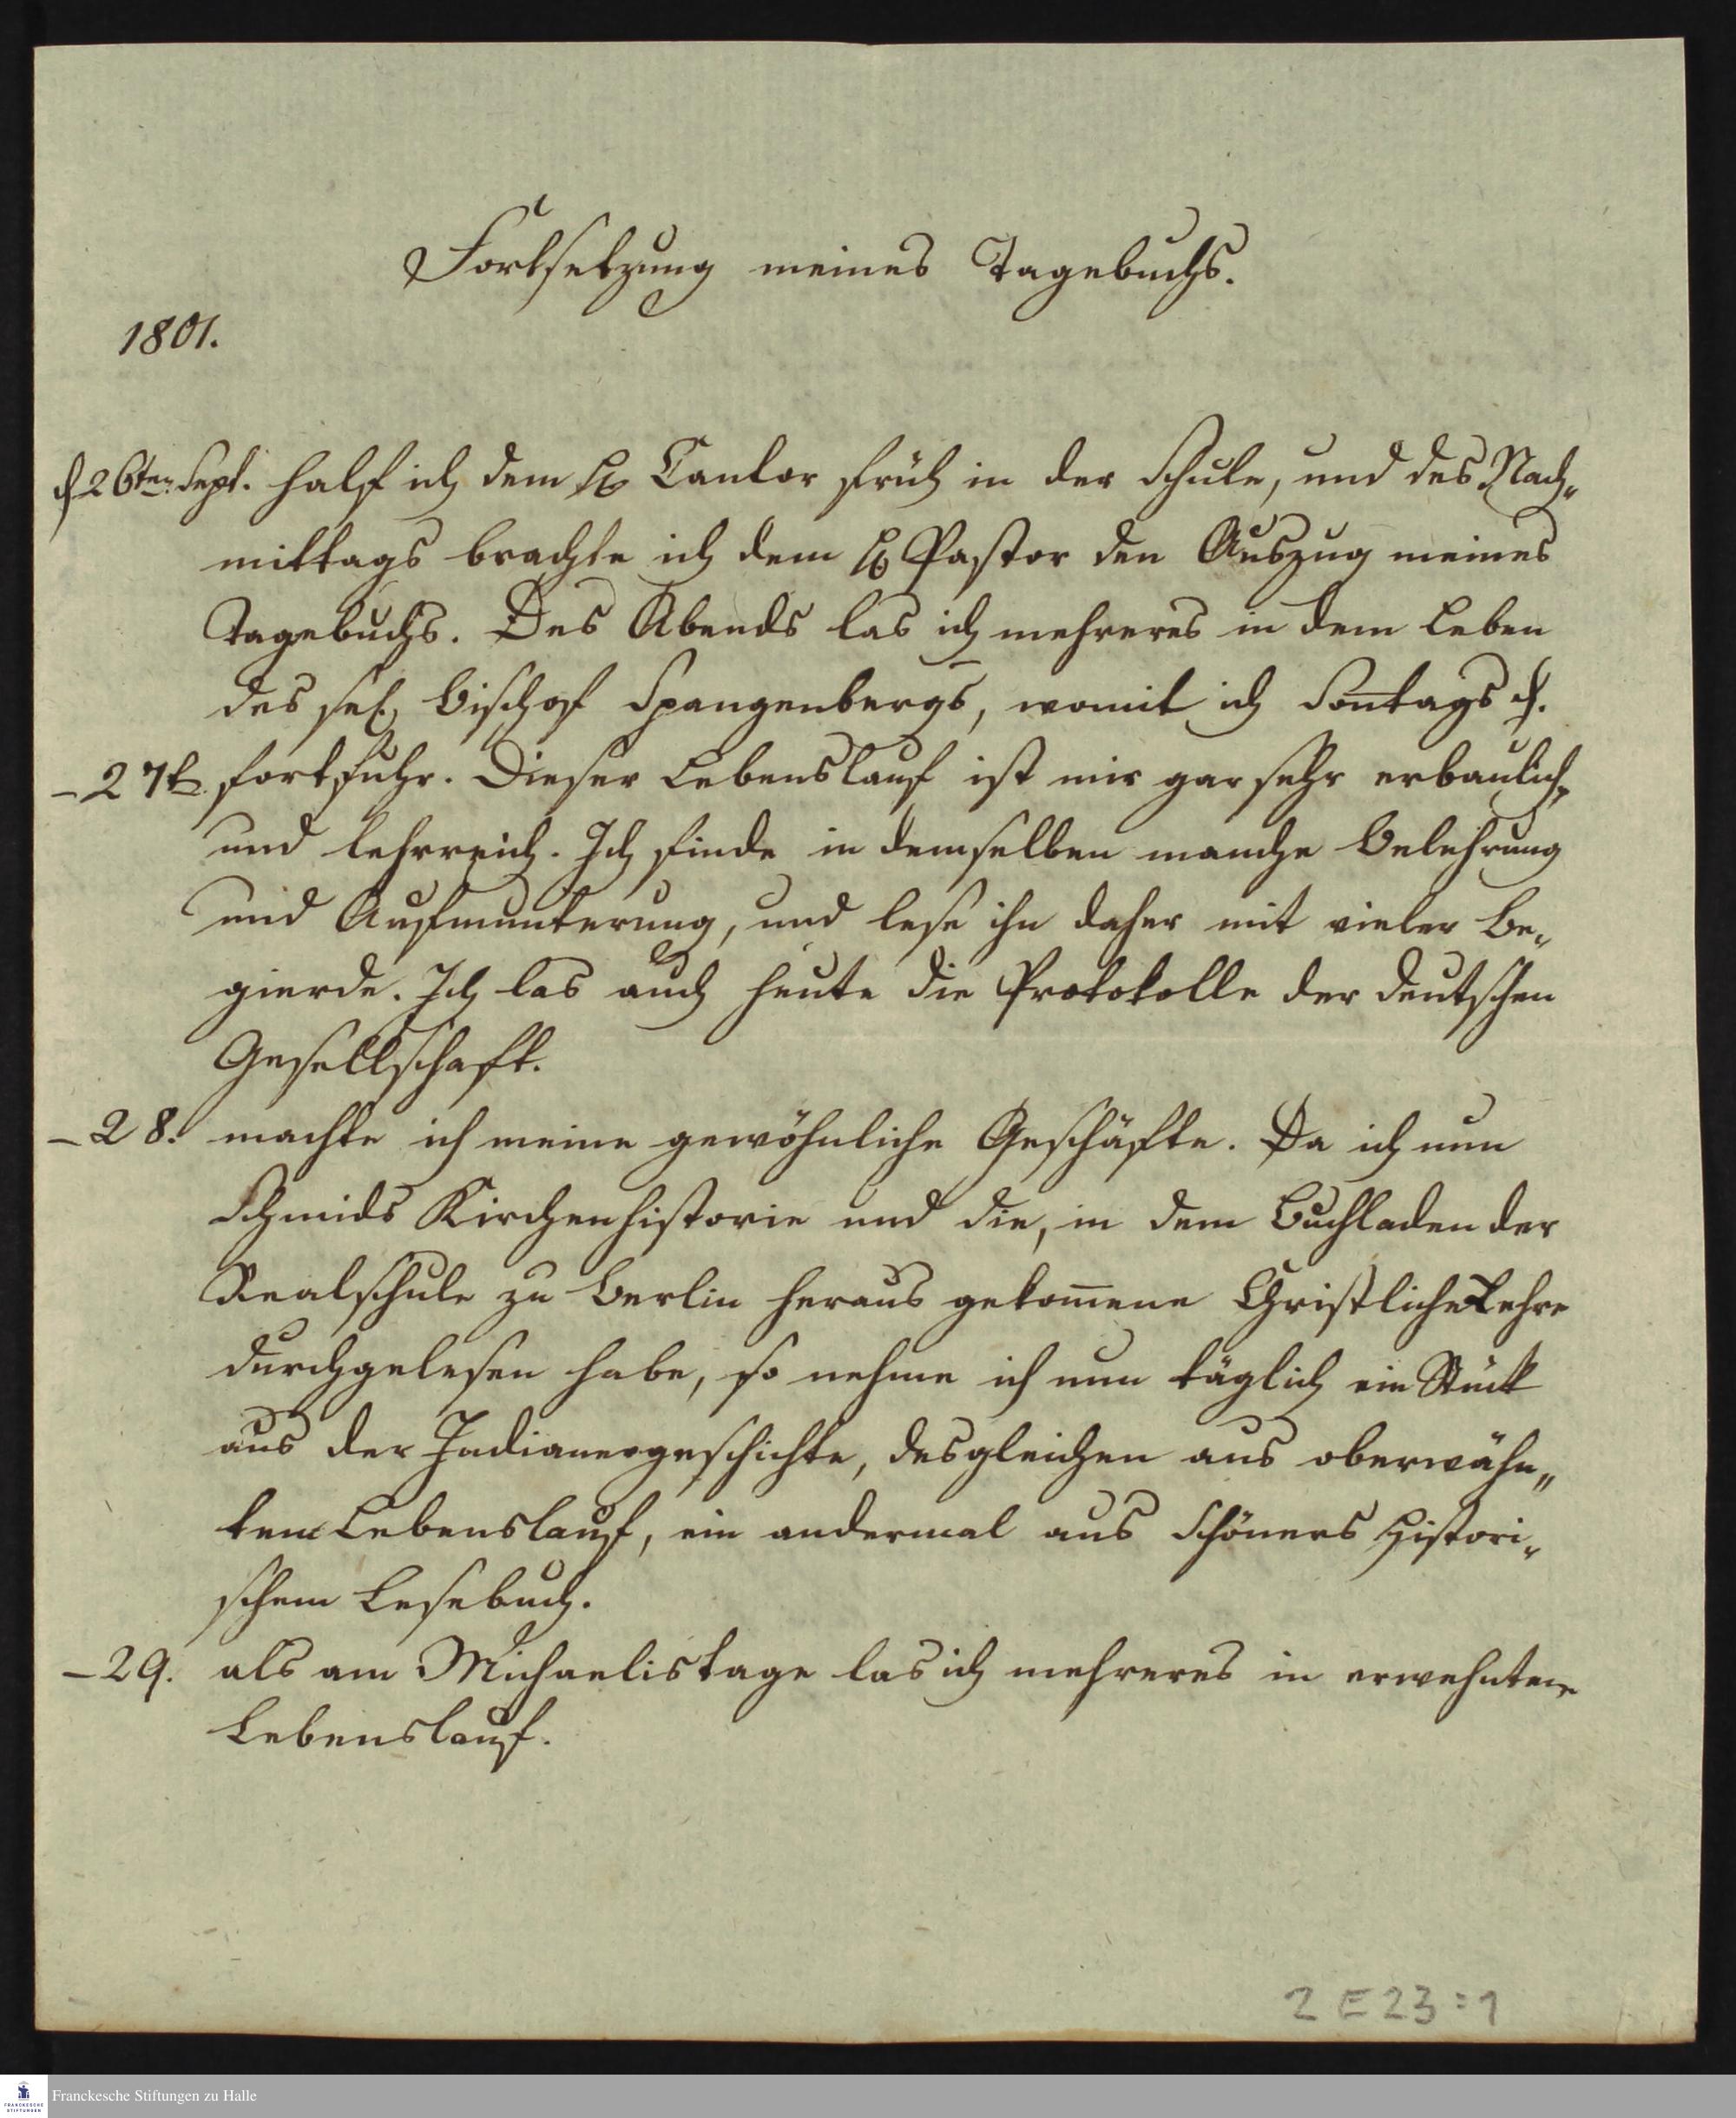 Fortsetzung meines Tagebuchs.
1801.
d 26ten Sept. half ich dem H Cantor früh in der Schule, und des Nach-
mittags brachte ich dem H Pastor den Auszug meines
Tagebuchs. Des Abends las ich mehreres in dem Leben
des sel. Bischof Spangenbergs, womit ich Son̅tags d.
- 27t. fortfuhr. Dieser Lebenslauf ist mir gar sehr erbaulich,
und lehrreich. Ich finde in demselben manche Belehrung
und Aufmunterung, und lese ihn daher mit vieler Be-
gierde. Ich las auch heute die Protokolle der deutschen
Gesellschaft.
- 28. machte ich meine gewöhnliche Geschäfte. Da ich nun
Schmids Kirchenhistorie und die, in dem Buchladen der
Realschule zu Berlin heraus gekom̅ene Christliche Lehre
durchgelesen habe, so nehme ich nun täglich ein Stück
aus der Indianergeschichte, desgleichen aus oberwähn-
tem Lebenslauf, ein andermal aus Schöners Histori-
schem Lesebuch.
- 29. als am Michaelistage las ich mehreres in erwehntem
Lebenslauf.
2 E 23 : 1
Franckesche Stiftungen zu Halle
FRANCKESCHE
STIFTUNGEN